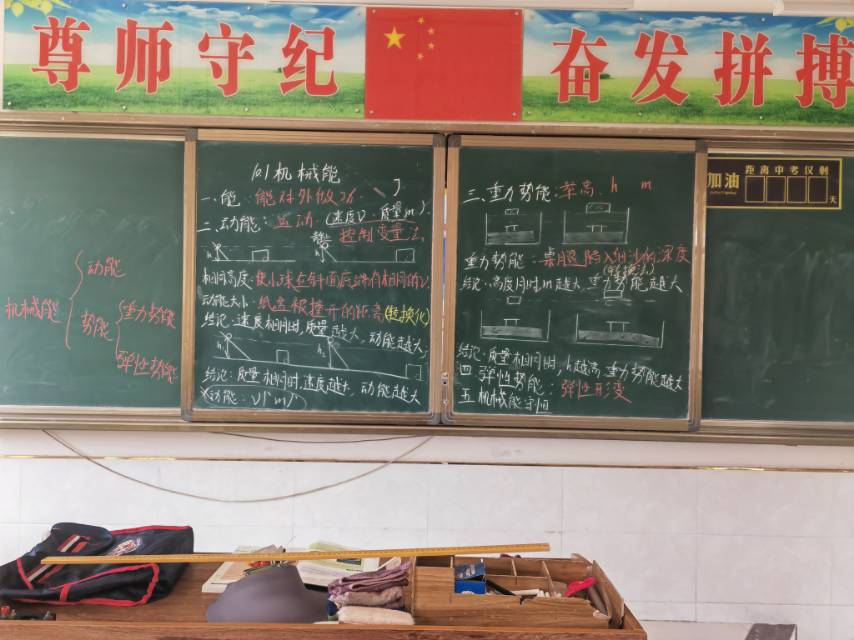 尊师守纪
奋发拼搏
加油
距离中考仅剩
天
机械能
动能
势能
重力势能
弹性势能
10.1 机械能
一.能：能对外做功 J
二.动能：运动（速度V、质量m）
控制变量法
h
相同高度：使小球在斜面底端有相同的V
动能大小：纸盒被推开的距离(转换化)
结论：速度相同时，质量越大，动能越大
h
h
结论：质量相同时，速度越大，动能越大
三.重力势能：举高 h m
重力势能：桌腿陷入细沙的深度
(转换法)
结论：高度同时，m越大，重力势能越大
结论：质量相同时，h越高，重力势能越大
四 弹性势能：弹性形变
五.机械能守恒